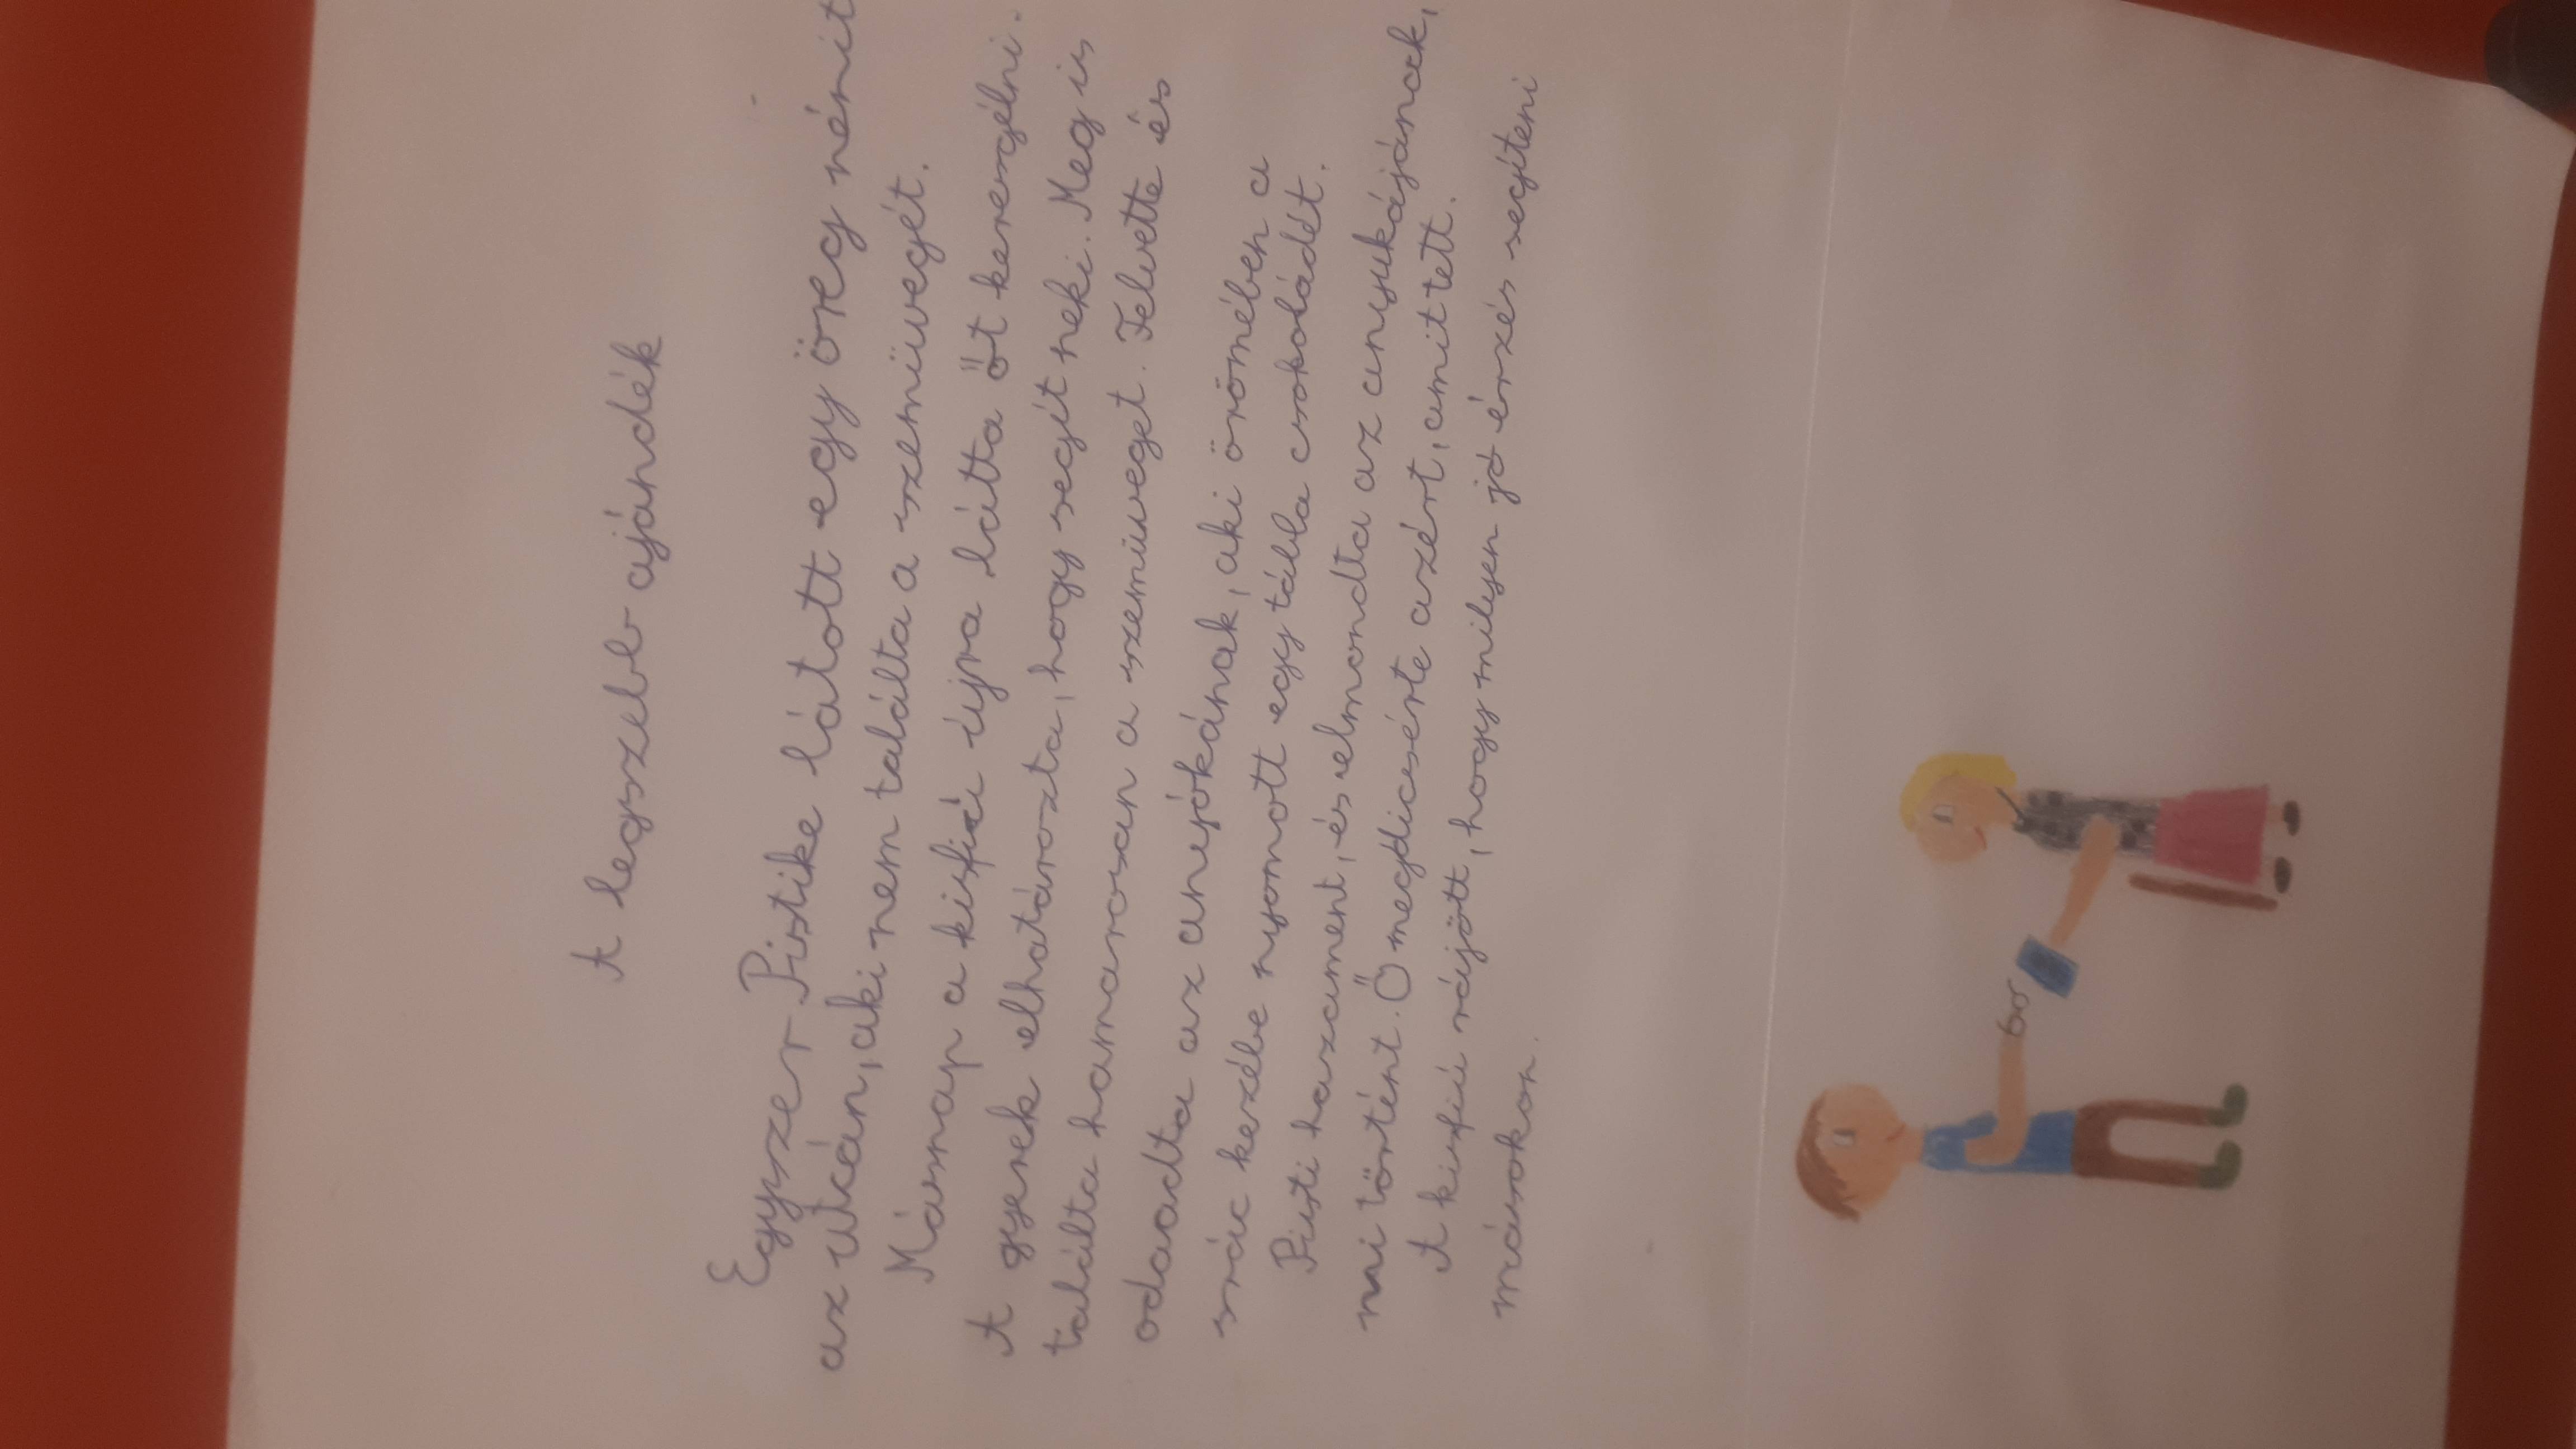 A legszebb ajándék
Egyszer Pistike látott egy öreg nénit
az utcán, aki nem találta a szemüvegét.
Másnap a kisfiú újra látta őt keresgélni.
A gyerek elhatározta, hogy segít neki. Meg is
találta hamarosan a szemüveget. Felvette és
odaadta az anyókának, aki örömében a
srác kezébe nyomott egy tábla csokoládét.
Pisti hazament, és elmondta az anyukájának,
mi történt. Ő megdicsérte azért, amit tett.
A kisfiú rájött, hogy milyen jó érzés segíteni
másokon.